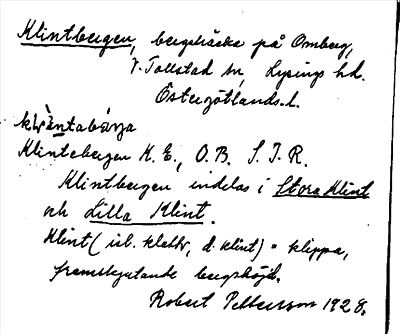 Klintbergen, bergsträcka på Omberg,
V. Tollstad sn, Lysings hd.
Östergötlands l.
Klintebergen K. E., O.B. S. J. R.
Klintbergen indelas i Stora Klint
och Lilla Klint.
Klint (isl. klettr, d. klint) = klippa,
framskjutande bergshöjd.
Robert Pettersson 1928.